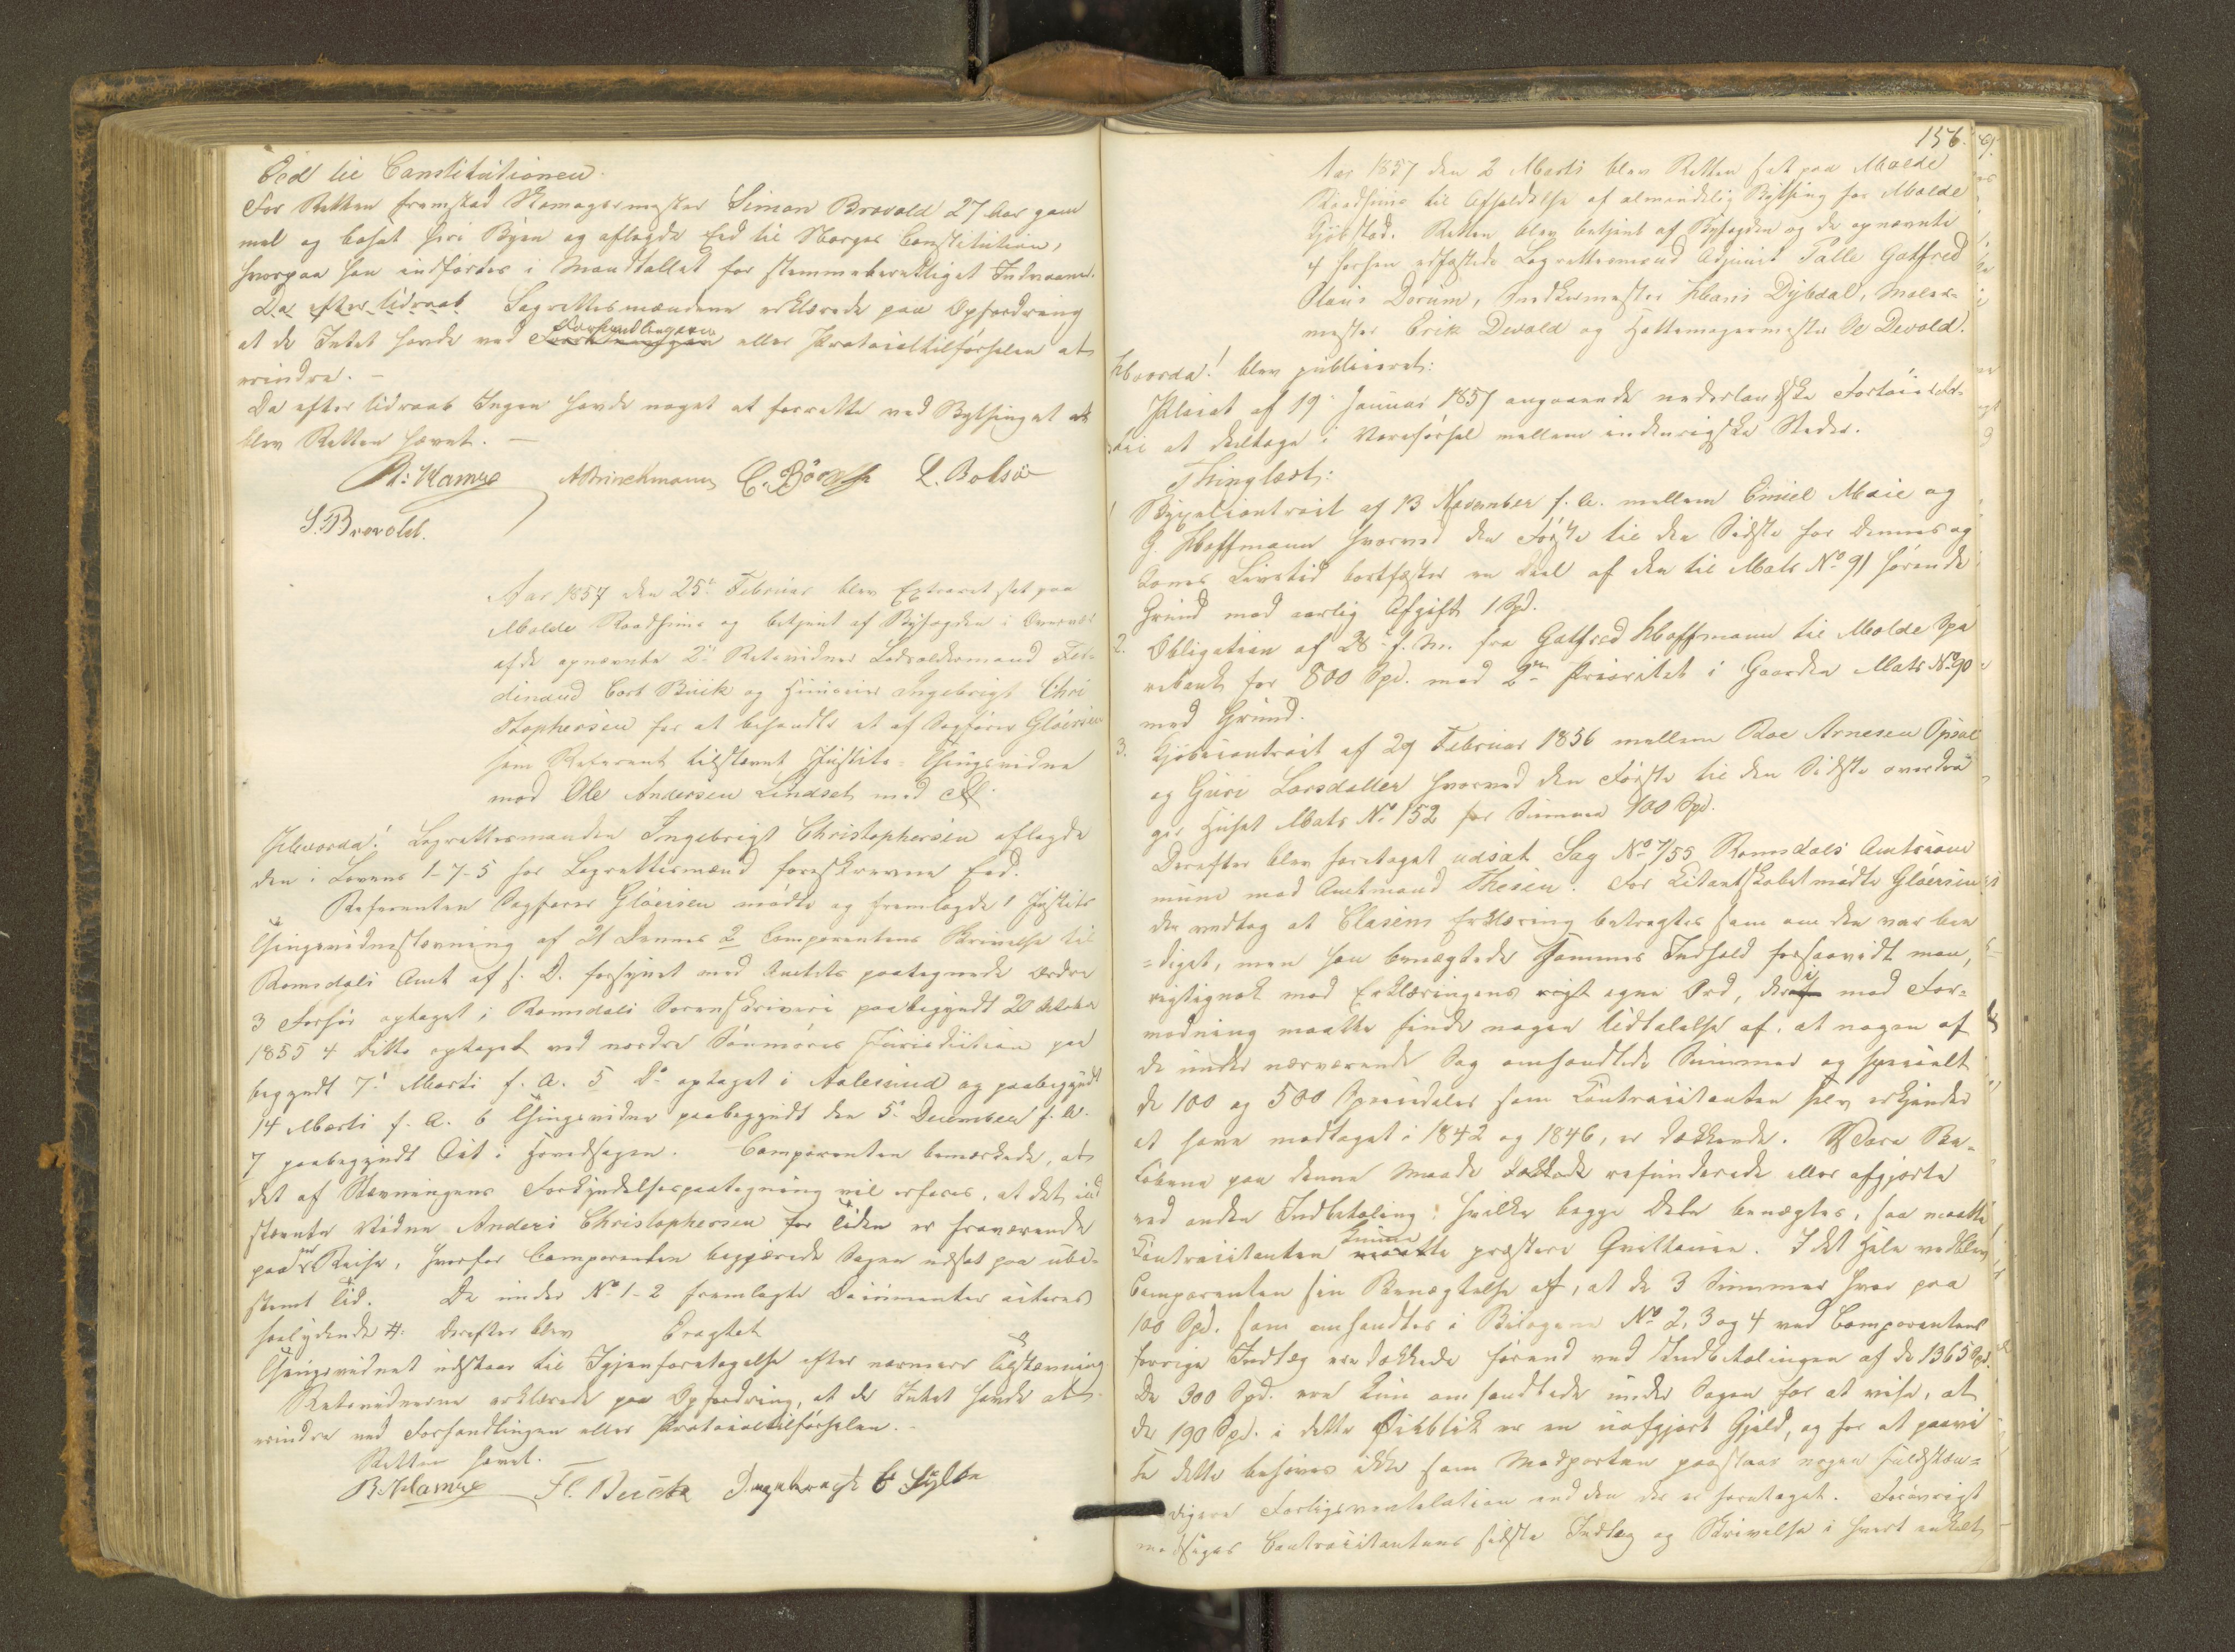 Eed til Constitutionen.
For Retten fremstod Skomagermester Simon Brovold 27 Aar gam
mel og bosat her i Byen og aflagde Eed til Norges Constitution,
hvorpaa han indførtes i Mandtallet for stemmeberettiget Indvaaner.
Da efter Udraab Lagrettesmændene erklærede paa Opfordring
at de Intet havde ved Forhandlingen eller Protocoltilførselen at
erindre. –
Da efter Udraab Ingen havde noget at forrette ved Bythinget
blev Retten hævet. –
A Brinckmann L. Bolsø
S. Brovold.
Aar 1857 den 25. Februar blev Extraret sat paa
Molde Raadhuus og betjent af Byfogden i Overvær
af de opnævnte 2 Retsvidner Lodsoldermand Fer-
dinand Carl Buck og Ingebrigt Chri
stophersen for at behandle et af Sagfører Gløersen
som Referent tilstævnt Justits-Thingsvidne
mod Ole Andersen Lindset med Fl.
Hvorda! Lagrettesmanden Ingebrigt Christophersen aflagde
den i Lovens 1-7-5 for Lagrettesmænd foreskrevne Eed.
Referenten Sagfører Gløersen mødte og fremlagde 1 Justits
Thingsvidnestævning af 21 Dennes 2 Comparentens Skrivelse til
Romsdals Amt af s. D. forsynet med Amtets paategnede Ordre
3 Forhør optaget i Romsdals Sorenskriveri paabegyndt 20 October
1855 4 Ditto optaget ved nordre Søndmøres Jurisdiction paa
begyndt 7. Marts f. A. 5 Do optaget i Aalesund og paabegyndt
14 Marts f. A. 6 Thingsvidne paabegyndt den 5. December f. A.
7 paabegyndt Act i Hovedsagen. Comparenten bemærkede, at
det af Stævningens Forkyndelsespaategning vil erfares, at det ind
stævnte Vidne Anders Christophersen for Tiden er fraværende
paa Reise, hvorfor Comparenten begjærede Sagen udsat paa ube-
stemt Tid. De under No 1-2 fremlagte Documenter acteres
saalydende #: Derefter blev Eragtet
Thingsvidnet udstaar til Igjenforetagelse efter nærmere Tilstævning
Retsvidnerne erklærede paa Opfordring, at de Intet havde at
erindre ved Forhandlingen eller Protocoltilførselen. –
Retten hævet. –
Fl. Buck Ingebrigt C
156.
Aar 1857 den 2 Marts blev Retten sat paa Molde
Raadhuus til Afholdelse af almindelig Bything for Molde
Kjøbstad. Retten blev betjent af Byfogden og de opnævnte
4 edfæstede Lagrettesmænd Adjunct Palle Gotfred
Olaus Dorum, Snedkermester Hans Dybdal, Maler-
mester Erik Devold og Hattemagermester Devold.
Hvorda! blev publiceret:
Placat af 19. Januar 1857 angaaende nederlandske Fartøiers Ad-
at deeltage i Vareførsel mellem indenrigske Steder.
Thinglæst:
Bygselcontract af 13 November f. A. mellem Emiel Moe og
G. Hoffmann hvorved den Første til den Sidste for dennes og
Kones Livstid bortfæster en Deel af den til Matr No 91 hørende
Grund mod aarlig Afgift 1 Spd.
2. Obligation af 28 f. M. fra Gotfred Hoffmann til Molde Spa
rebank for 800 Spd. med 2den Prioritet i Gaarden Matr No 90
med Grund.
3. Kjøbecontract af 29 Februar 1856 mellem Roe Arnesen Opsal
og Guri Larsdatter hvorved den Første til den Sidste overdra
ger Huset Matr No 152 for Summa 100 Spd.
Derefter blev foretaget udsat Sag No 7/55 Romsdals Amtscom
mune mod Amtmand Thesen. For Citantskabet mødte Gløersen
der vedtog at Clasens Erklæring betragtes som om den var bee
=diget, men han benægtede Sammes Indhold forsaavidt man,
rigtignok mod Erklæringens egne Ord, deri med For-
modning maatte finde nogen Udtalelse af, at nogen af
de under nærværende Sag omhandlede Summer og specielt
de 100 og 500 Speciedaler som Contracitanten selv erkjender
at have modtaget i 1842 og 1846, er dækkende. Vare Be-
løbene paa denne Maade refunderede eller afgjorte
ved anden Indbetaling hvilke begge Dele benægtes, saa maatte
Contracitanten kunne præstere Qvittance. I det Hele vedblev
Comparenten sin Benægtelse af, at de 3 Summer hver paa
100 Spd. som omhandles i Bilagene No 2, 3 og 4 ved Comparentens
forrige Indlæg ere dækkede førend ved Indbetalingen af de 1365 Spd.
De 300 Spd. ere kun omhandlede under Sagen for at vise, at
de 190 Spd. i dette Øieblik er en uafgjort Gjeld, og for at paavi
se dette behøves ikke som Modparten paastaar nogen fuldstæn-
digere Forligsventilation end den der er foretaget. Forøvrigt
modsiges Contracitantens sidste Indlæg og Skrivelse i hvert enkelt